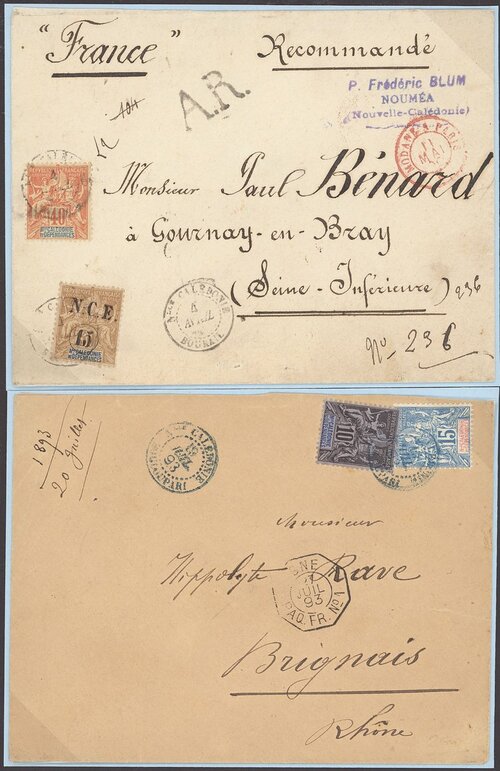 "France"
Recommandé
A.R.
P. Frédéric BLUM
NOUMÉA
(Nouvelle-Calédonie)
MODANE A PARIS
11
MAI
Monsieur Paul Bénard
à Gournay-en-Bray
(Seine-Inférieure) 236
No 236
40
Nlle CALÉDONIE
ET DÉPENDANCES
N.C.E.
15
Nlle CALÉDONIE
ET DÉPENDANCES
Nlle CALEDONIE
4
AVRIL
BOURAIL
1893
20 Juillet
CALEDONIE
93
10
15
Monsieur
Hippolyte Rave
JUIL
93
PAQ. FR. No 1
Brignais
Rhône